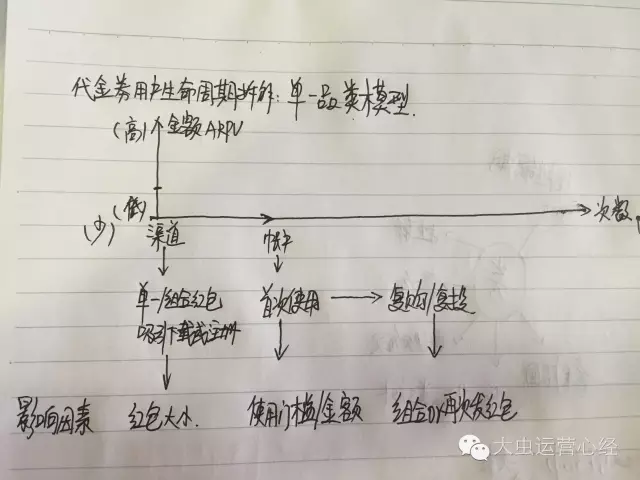 代金券用户生命周期拆解:单一品类模型.
(高) 金额ARPU
(低)
(少)
次数
渠道
帐户
单一/组合红包
吸引下载或注册
首次使用
复购/复投
影响因素
红包大小.
使用门槛/金额
组合or再次发红包
大虫运营心经